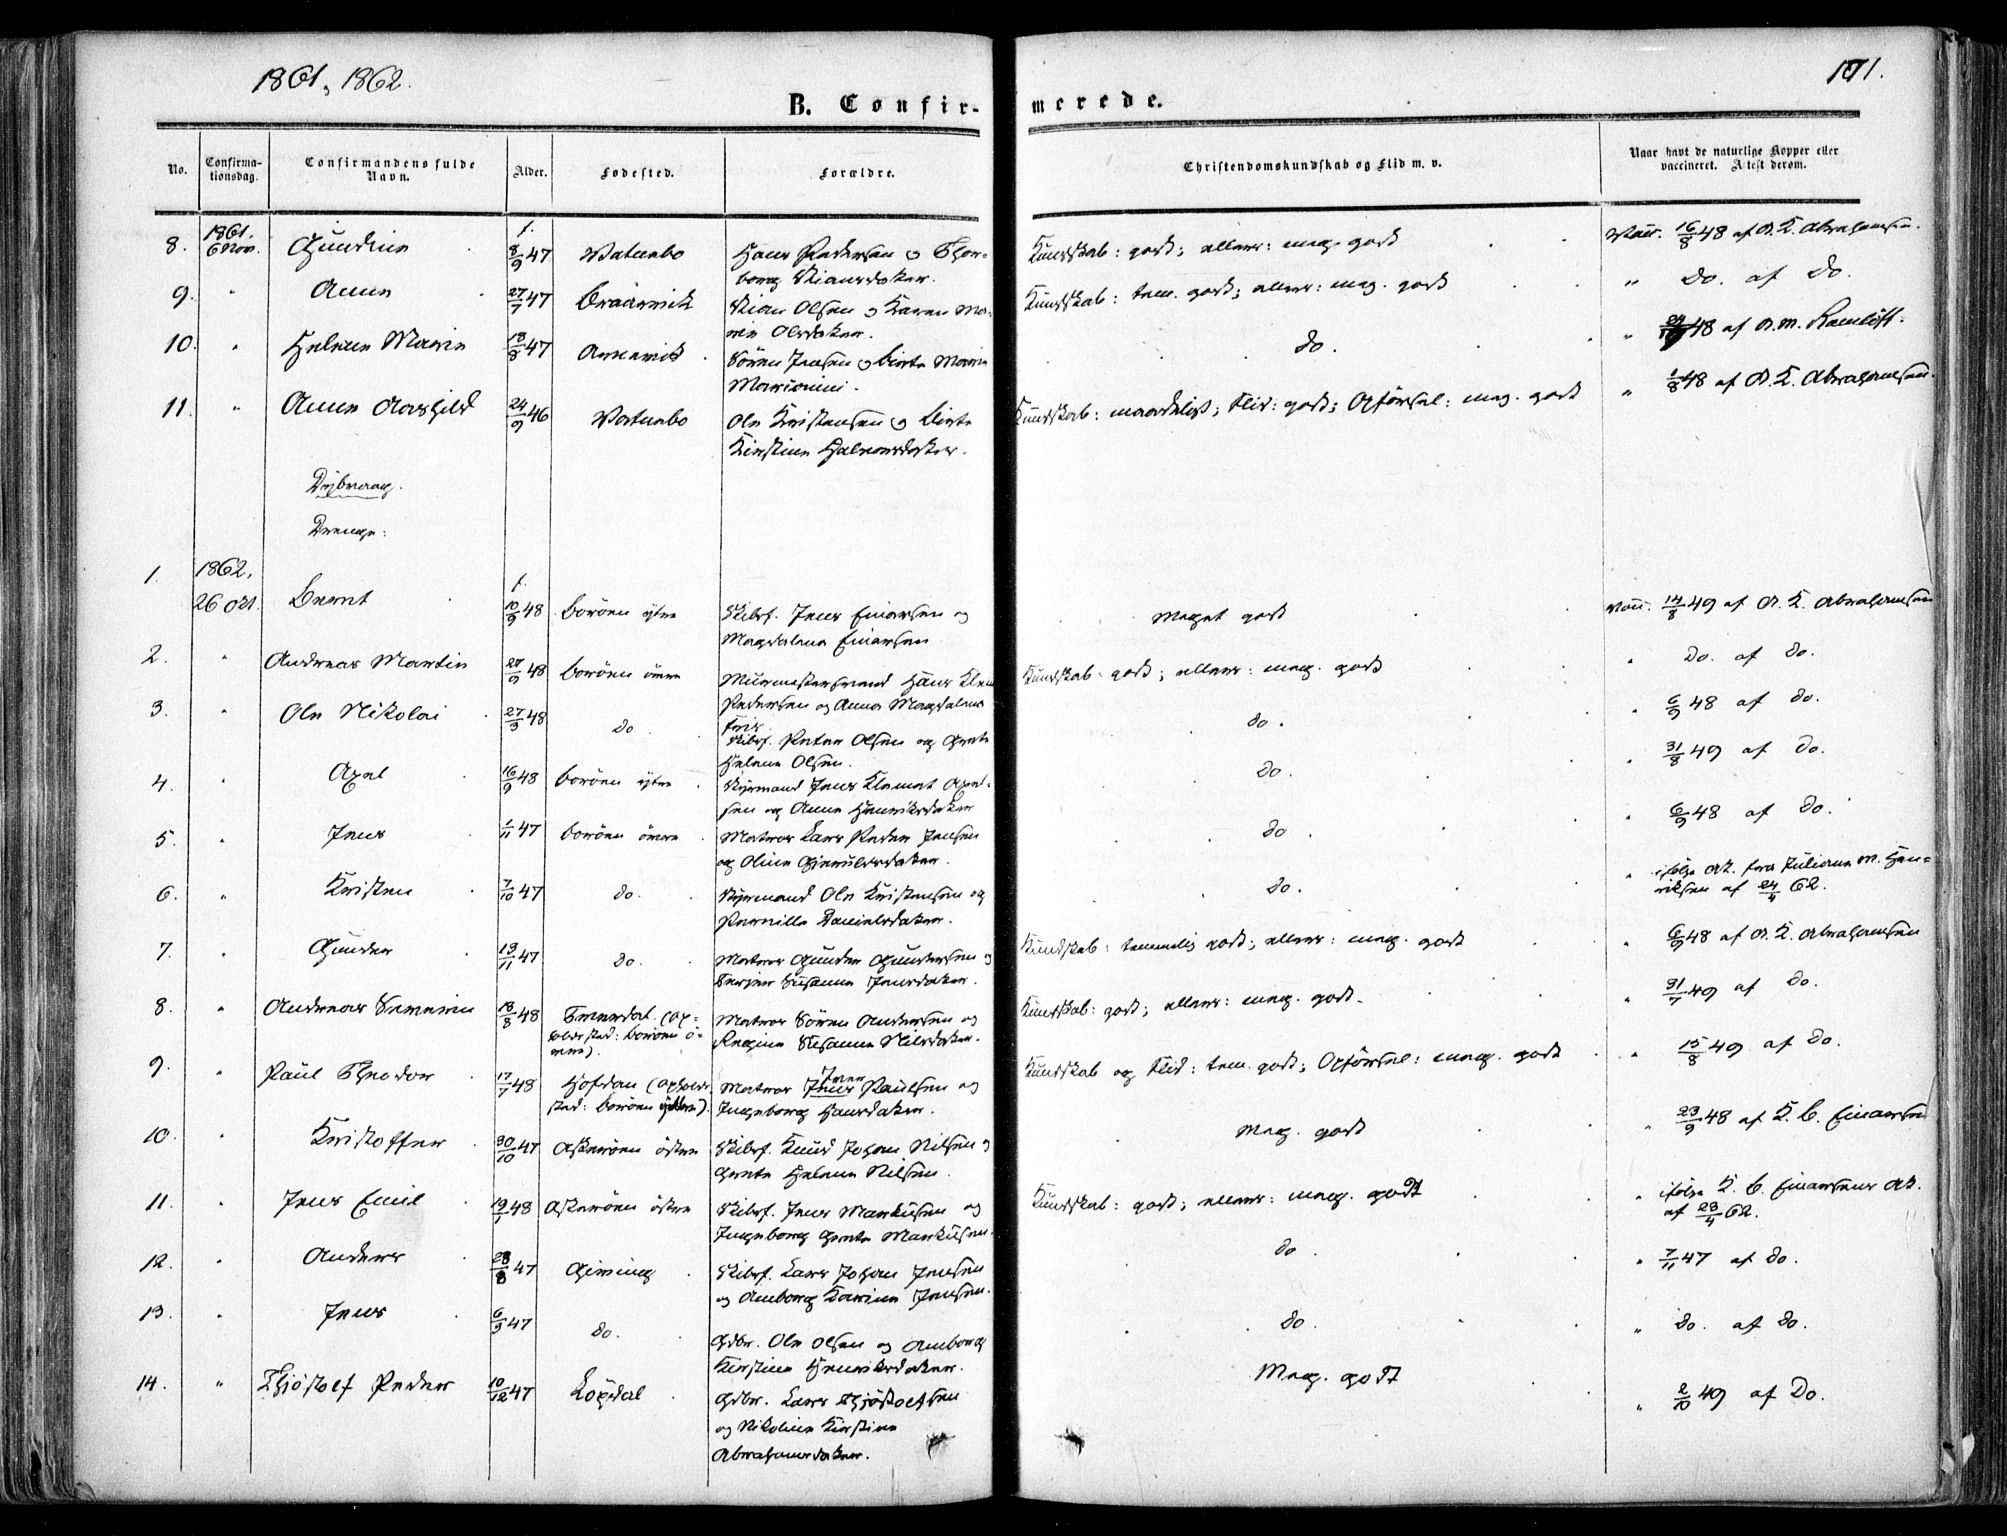 1861, 1862.
171.
B. Confir-
merede.
No.
Confirma-
tionsdag.
Confirmandens fulde
Navn.
Alder.
Fødested.
Forældre.
Christendomskundskab og Flid m. v.
Naar havt de naturlige Kopper eller
vaccineret. Attest derom.
8. 1861. 6 Nov. Gundine f. 8/9 47 Vatnebo Hans Pedersen o Thor-
borg Stiansdater. Kundskab: godt; ellers: meg. godt Vacc. 16/8 48 af A. K. Abrahamsen.
9. " Anne 27/7 47 Stian Olsen o Karen Ma-
rie Olsdater. Kundskab: tem. godt; ellers: meg. godt " do. af do.
10. " Helene Marie 18/8 47 Sören Jensen o Birte Marie
do. " 48 af A. M.
11. " Anne Aashild 24/9 46 Vatnebo Ole Kristensen o Birte
Kirstine Halvorsdater. Kundskab: maadeligt; Flid: godt; Opförsel: meg. godt " 1/8 48 af A. K. Abrahamsen.
Dybvaag.
Drenge:
1. 1862. 26 Okt. Bernt f. 10/9 48 Borøen ytre Skibsf. Jens Einarsen og
Magdalena Einarsen. Meget godt Vacc. 14/8 49 af A. K. Abrahamsen
2. " Andreas Martin 27/9 48 Borøen indre Murmestersvend Hans Klem
Pedersen og Anna Magdalena
Kundskab: godt; ellers: meg. godt " do. af do.
3. " Ole Nikolai 27/3 48 do Skibsf. Peter Olsen og Grete
Helene Olsen. do. " 6/9 48 af do.
4. " Axel 16/9 48 Borøen ytre Styrmand Jens Klemet Axel-
sen og Anne Henriksdater do. " 31/8 49 af do.
5. " Jens 1/11 47 Borøen indre Matros Lars Peder Jensen
og Oline Gjeruldsdater. do " 6/9 48 af do.
6. " Kristen 7/10 47 do. Styrmand Ole Kristensen og
Pernille Danielsdater. do. " ifölge At. fra Juliane M. Hen-
riksen af 24/4 62.
7. " Gunder 13/11 47 do. Matros Gunder Gundersen og
Terjine Susanne Jensdater. Kundskab: temmelig godt; ellers: meg. godt " 6/9 48 af A. K. Abrahamsen
8. " Andreas Severin 18/8 48 (op-
holdssted: Borøen in-
dre). Matros Sören Andersen og
Regine Susanne Nilsdater. Kundskab: godt; ellers: meg. godt. " 31/7 49 af do.
9. " Paul Theodor 17/7 48 (opholds-
sted: Borøen ytre). Matros Jens Paulsen og
Iver
Ingeborg Hansdater. Kundskab og Flid: tem. godt; Opförsel: meg. godt " 15/8 49 af do.
10. " Kristoffer 30/10 47 Askerøen östre Skibsf. Knud Johan Nilsen o
Grete Helene Nilsen. Meg. godt " 23/9 48 af K. C. Einarsen
11. " Jens Emil 48 Askerøen östre Skibsf. Jens Markusen og
Ingeborg Grete Markusen. Kundskab: godt; ellers: meg. godt " ifölge K. C. Einarsens At.
af 23/4 62.
12. " Anders 28/8 47 Gjeving Skibsf. Lars Johan Jensen
og Anborg Karine Jensen. do " 7/11 47 af do.
13. " Jens 6/9 47 do. Gdbr. Ole Olsen og Anborg
Kirstine Henriksdater. do " do. af do.
14. " Thjöstolf Peder 10/12 47 Lögdal Gdbr. Lars Thjöstolfsen
og Nikoline Kirstine
Abrahamsdater. Meg. godt " 2/10 49 af Do.